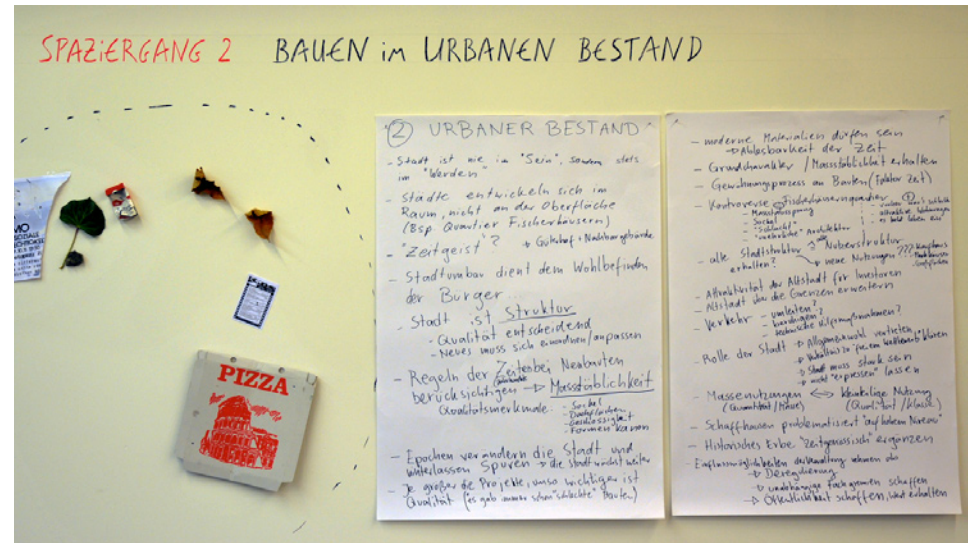 SPAZIERGANG 2 BAUEN im URBANEN BESTAND
MO
PIZZA
② URBANER BESTAND
- Stadt ist nie im "Sein", sondern stets
im "Werden"
- Städte entwickeln sich im
Raum, nicht an der Oberfläche
(Bsp. Quartier Fischerhäusern)
- "Zeitgeist"?
- Stadtumbau dient dem Wohlbefinden
der Bürger
- Stadt ist Struktur
- Qualität entscheidend
- Neues muss sich einordnen/anpassen
- Regeln der Zeiten bei Neubauten
berücksichtigen → Massstäblichkeit
Qualitätsmerkmale: - Sockel
- Dachflächen
- Geschossigkeit
- Formenkanon
- Epochen verändern die Stadt und
hinterlassen Spuren → die Stadt wächst weiter
- Je größer die Projekte, umso wichtiger ist
Qualität (es gab immer schon "schlechte" Bauten)
- moderne Materialien dürfen sein
→ Ablesbarkeit der Zeit
- Grundcharakter / Massstäblichkeit erhalten
- Gewöhnungsprozess an Bauten (Faktor Zeit)
- Kontroverse Fischerhäuserquartier
- Sockel
- "Schlucht"
- alle Stadtstruktur
erhalten? neue Nutzungen ???
- Attraktivität der Altstadt für Investoren
- Altstadt über die Grenzen erweitern
- Verkehr - umleiten?
- technische Hilfsmaßnahmen?
- Rolle der Stadt → Allgemeinwohl vertreten
→ Stadt muss stark sein
→ nicht "erpressen" lassen
- Massennutzungen ⟺ kleinteilige Nutzung
(Quantität / Masse) (Qualität / Klasse)
- Schaffhausen problematisiert "auf hohem Niveau"
- Historisches Erbe "zeitgenössisch" ergänzen
- Einflussmöglichkeiten der Verwaltung nehmen ab
→ Deregulierung
→ unabhängige Fachgremien schaffen
→ Öffentlichkeit schaffen, Wert erhalten